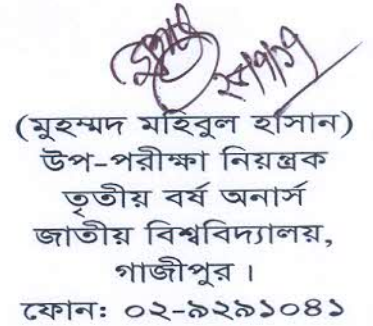 (মুহম্মদ মহিবুল হাসান)
উপ-পরীক্ষা নিয়ন্ত্রক
তৃতীয় বর্ষ অনার্স
জাতীয় বিশ্ববিদ্যালয়,
গাজীপুর ।
ফোন: ০২-৯২৯১০৪১